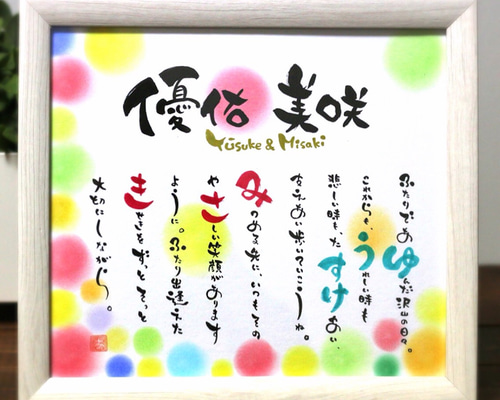 優佑 美咲
Yūsuke & Misaki
ふたりであゆんだ沢山の日々。
これからも、うれしい時も
悲しい時も、たすけあい、
支えあい歩いていこうね。
みつめる先に、いつもその
やさしい笑顔があります
ように。ふたり出逢えた
きせきをずっとそっと
大切にしながら。